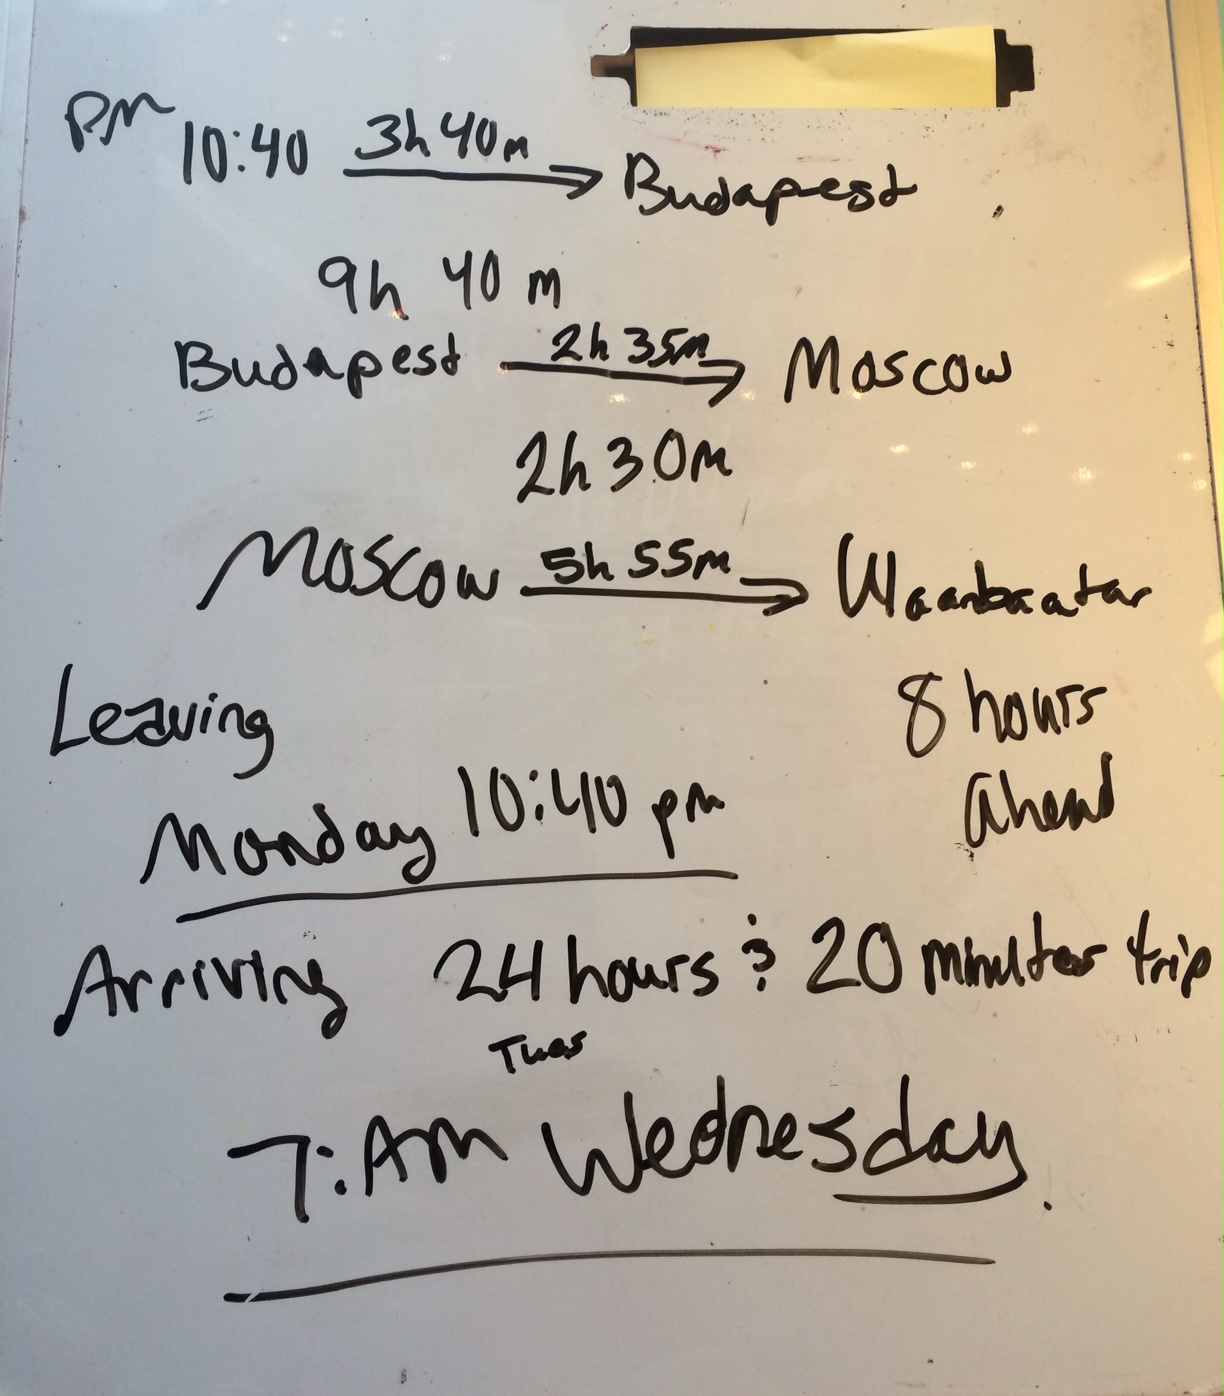 PM 10:40 3h 40m Budapest
9h 40m
Budapest 2h 35m Moscow
2h 30m
Moscow 5h 55m Ulaanbaatar
Leaving
8 hours
ahead
Monday 10:40 pm
Arriving 24 hours & 20 minutes trip
Tues
7:AM Wednesday.